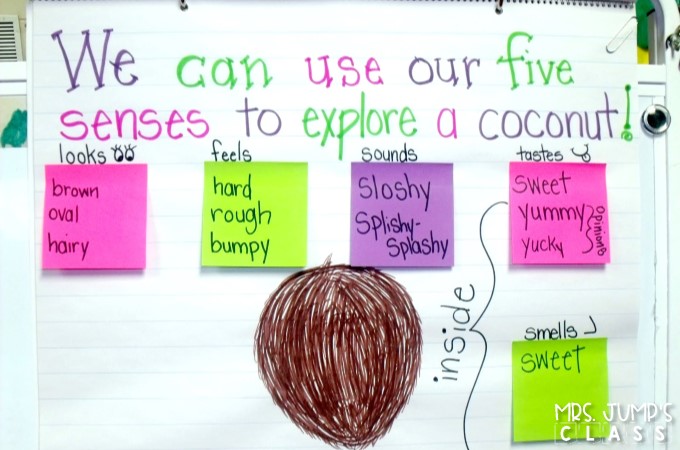 We can use our five
senses to explore a coconut!
looks
brown
oval
hairy
feels
hard
rough
bumpy
sounds
sloshy
splishy-
splashy
tastes
sweet
yummy
yucky
opinions
inside
smells
sweet
MRS. JUMP'S
CLASS